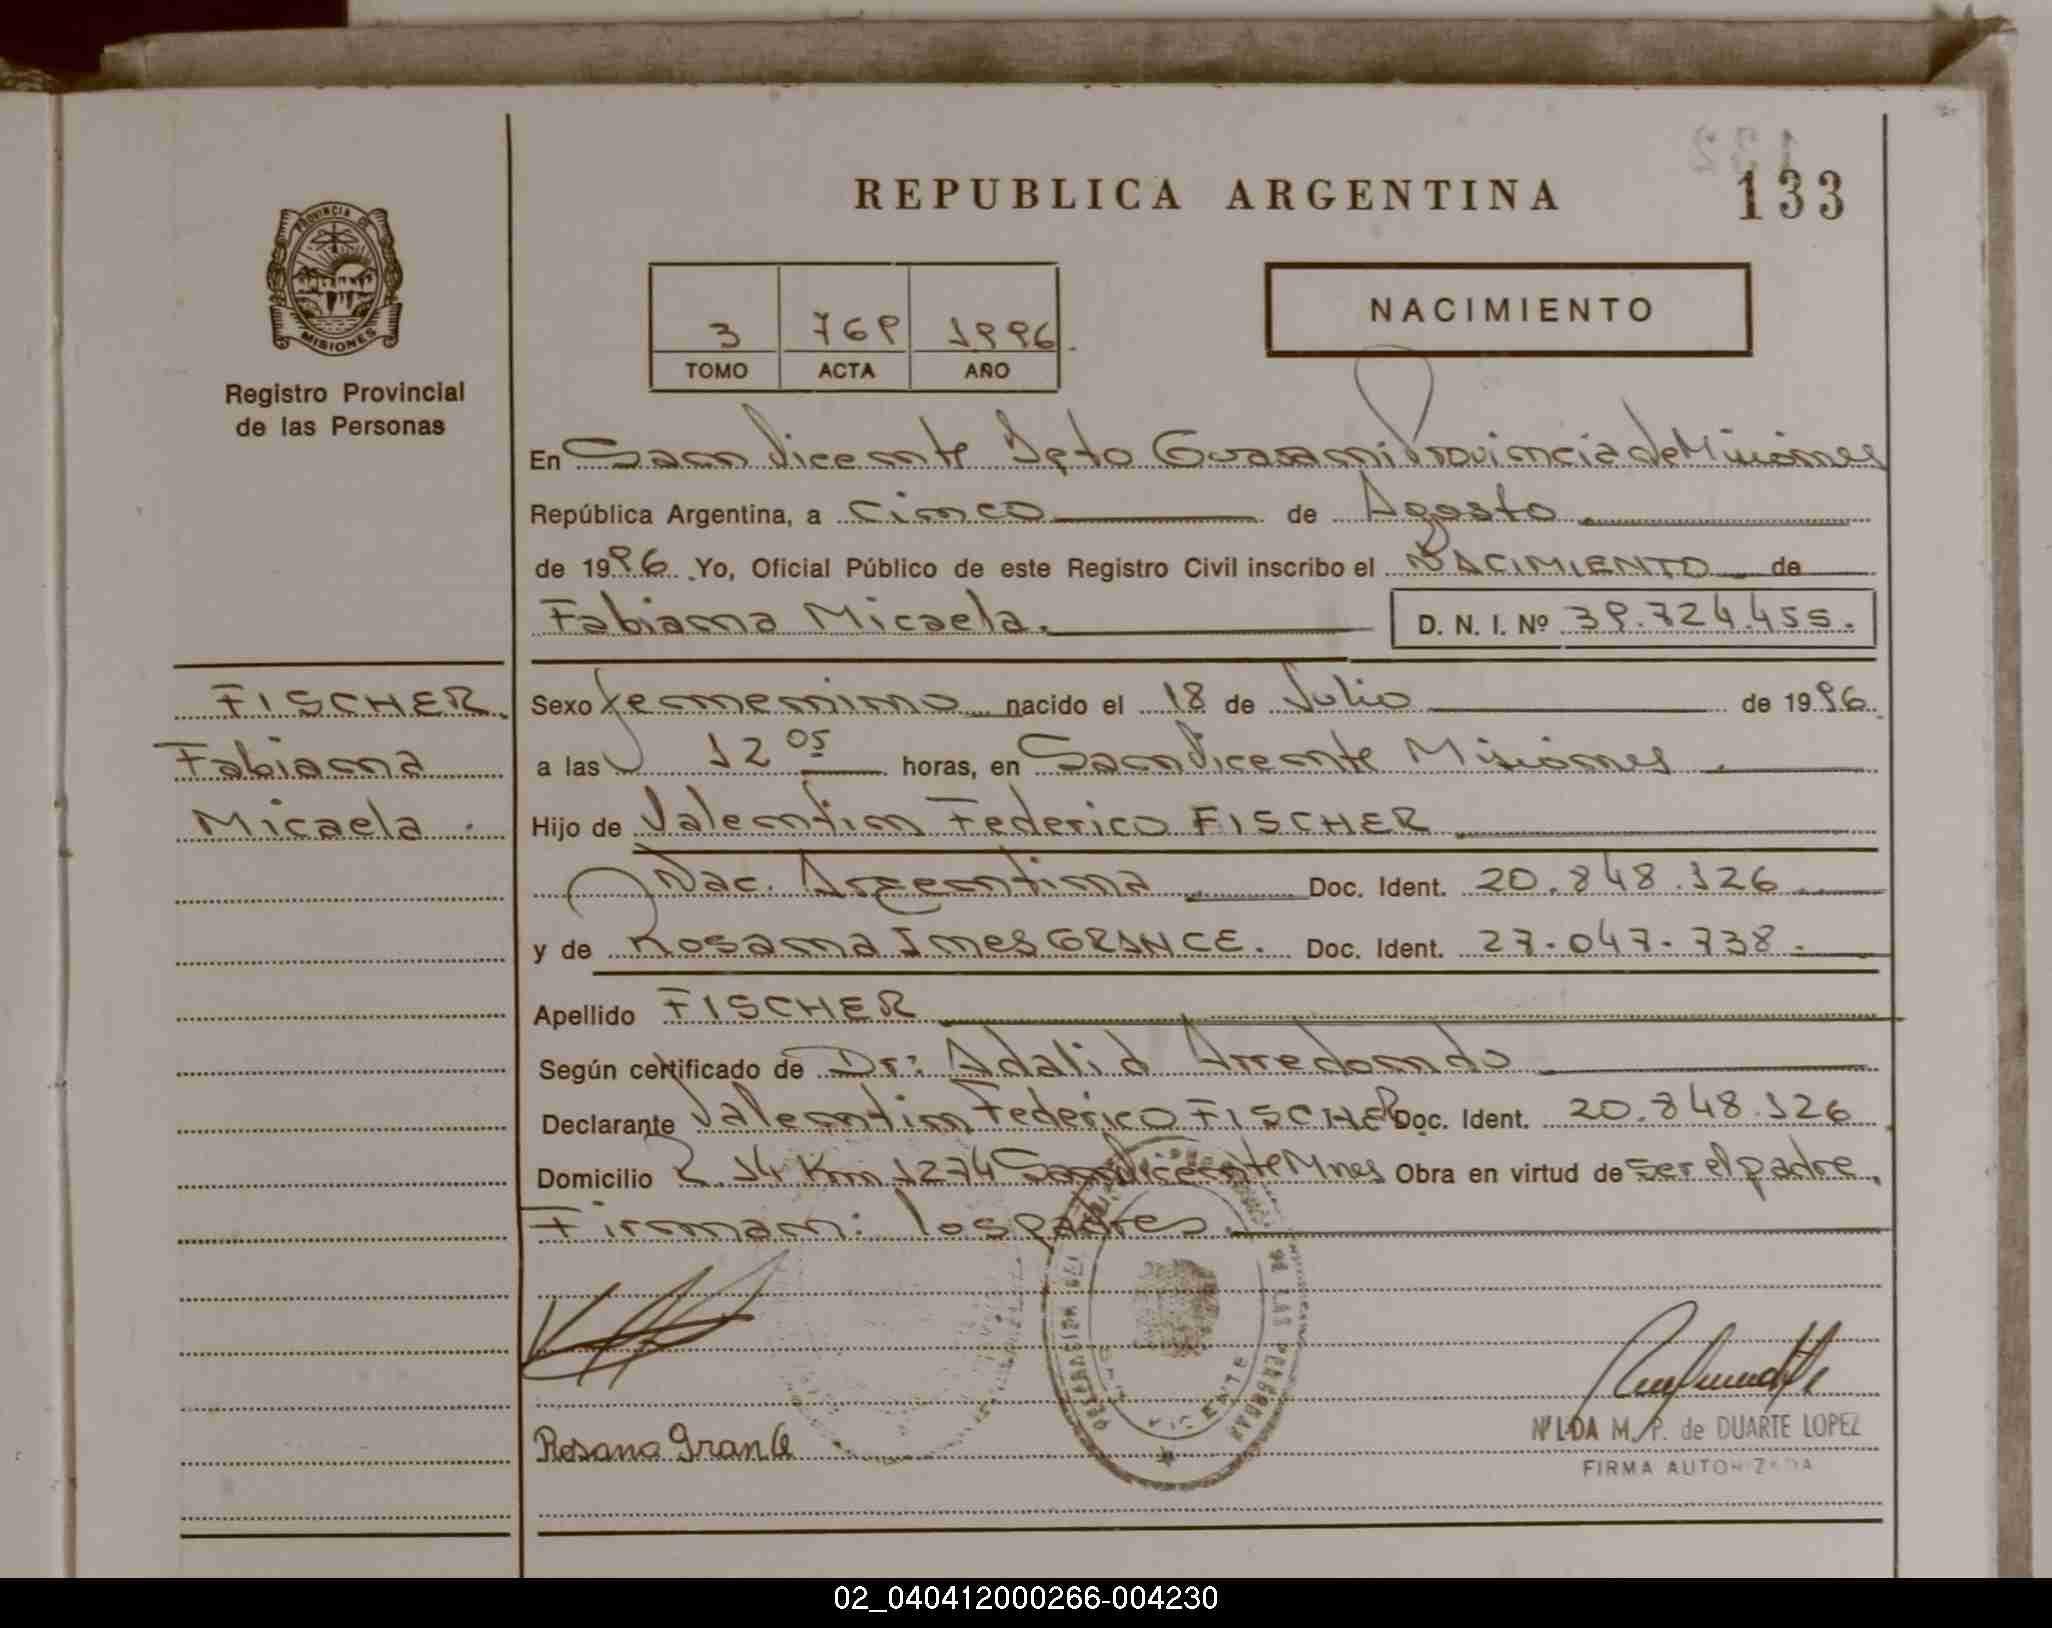 REPUBLICA ARGENTINA
133
PROVINCIA DE
MISIONES
Registro Provincial
de las Personas
3 769 1996
TOMO ACTA AÑO
NACIMIENTO
En San Vicente Dpto Guarani Provincia de Misiones
República Argentina, a cinco de Agosto
de 1996 Yo, Oficial Público de este Registro Civil inscribo el NACIMIENTO de
Fabiana Micaela. D. N. I. Nº 39.724.455.
FISCHER
Fabiana
Micaela.
Sexo femenino nacido el 18 de Julio de 1996.
a las 12 05 horas, en San Vicente Misiones
Hijo de Valentin Federico FISCHER
Nac. Argentina Doc. Ident. 20.848.126
y de Rosana Ines GRANCE. Doc. Ident. 27.047.738.
Apellido FISCHER
Según certificado de Dr: Adalid Arredondo
Declarante Valentin Federico FISCHER Doc. Ident. 20.848.126
Domicilio R. 14 Km 1274 San Vicente Mnes Obra en virtud de ser el padre.
Firman: los padres.
DE LAS PERSONAS
VICENTE
Rosana Grance
NILDA M. P. de DUARTE LOPEZ
FIRMA AUTORIZADA
02_040412000266-004230